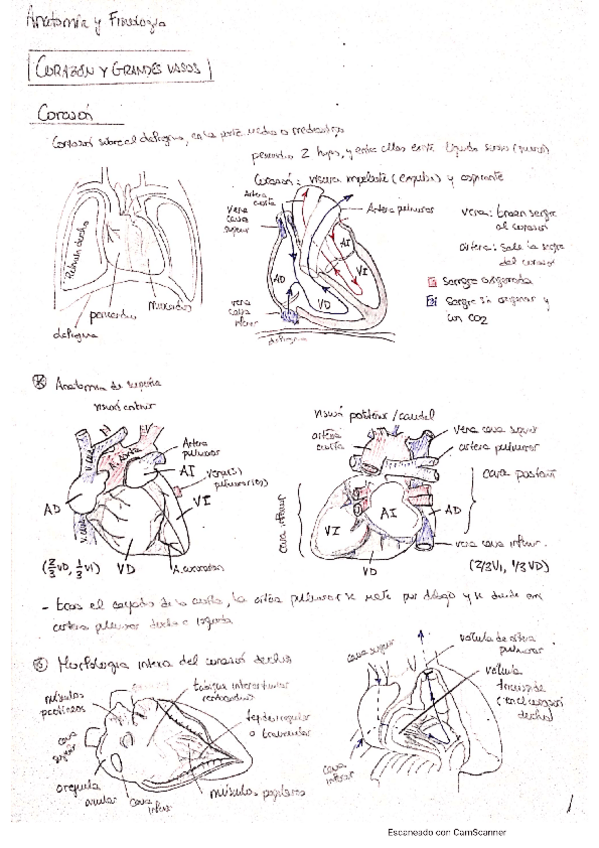 Anatomía y Fisiología
CORAZÓN Y GRANDES VASOS
Corazón
Corazón sobre el diafragma, en la parte media o mediastino
pericardio 2 hojas, y entre ellas existe líquido seroso
Corazón: víscera impelente (empuja) y aspirante
Pulmón derecho
pericardio
diafragma
Arteria aorta
vena cava superior
Arteria pulmonar
AD
AI
VI
VD
vena cava inferior
diafragma
vena: traen sangre al corazón
arteria: sale la sangre del corazón
sangre oxigenada
sangre sin oxigenar y con CO2
Anatomía de superficie
visión anterior
V. cava
A. Aorta
Arteria pulmonar
AI
vena(s) pulmonar(es)
VI
AD
V. cava
(2/3 VD, 1/3 VI)
VD
A. coronarias
visión posterior / caudal
arteria aorta
vena cava superior
arteria pulmonar
cara posterior
cara inferior
VI
AI
AD
VD
vena cava inferior
(2/3 VI, 1/3 VD)
- tras el cayado de la aorta, la arteria pulmonar se mete por debajo y se divide en
arteria pulmonar derecha e izquierda
Morfología interna del corazón derecho
músculos pectíneos
tabique interventricular
cava superior
orejuela
cava inferior
músculos papilares
cava superior
válvula de arteria pulmonar
válvula tricúspide
(en el corazón derecho)
cava inferior
1
Escaneado con CamScanner